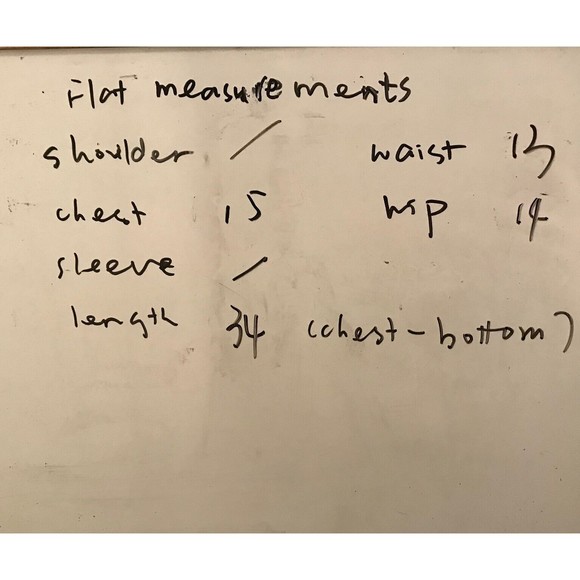 Flat measurements
shoulder / waist 13
chest 15 hip 14
sleeve /
length 34 (chest-bottom)